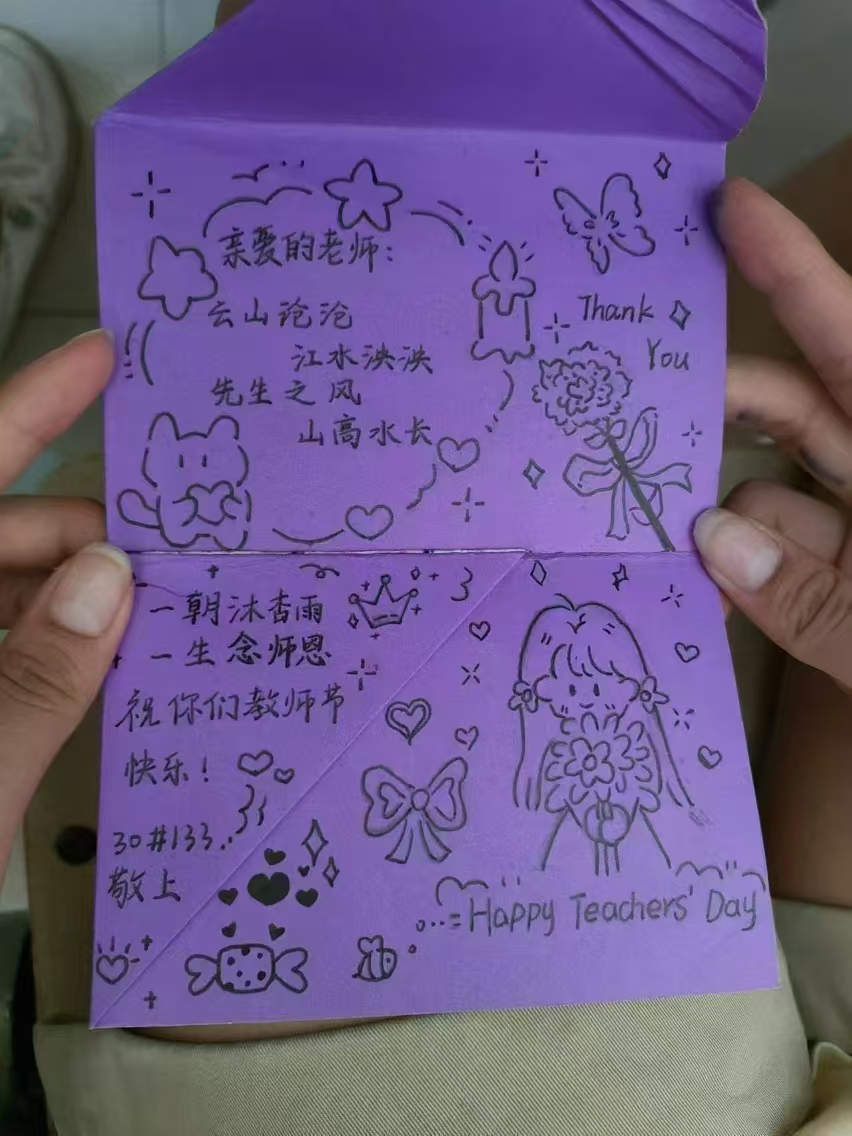 亲爱的老师：
云山沧沧
江水泱泱
先生之风
山高水长
Thank
You
一朝沐杏雨
一生念师恩
祝你们教师节
快乐！
30#133.
敬上
Happy Teachers' Day